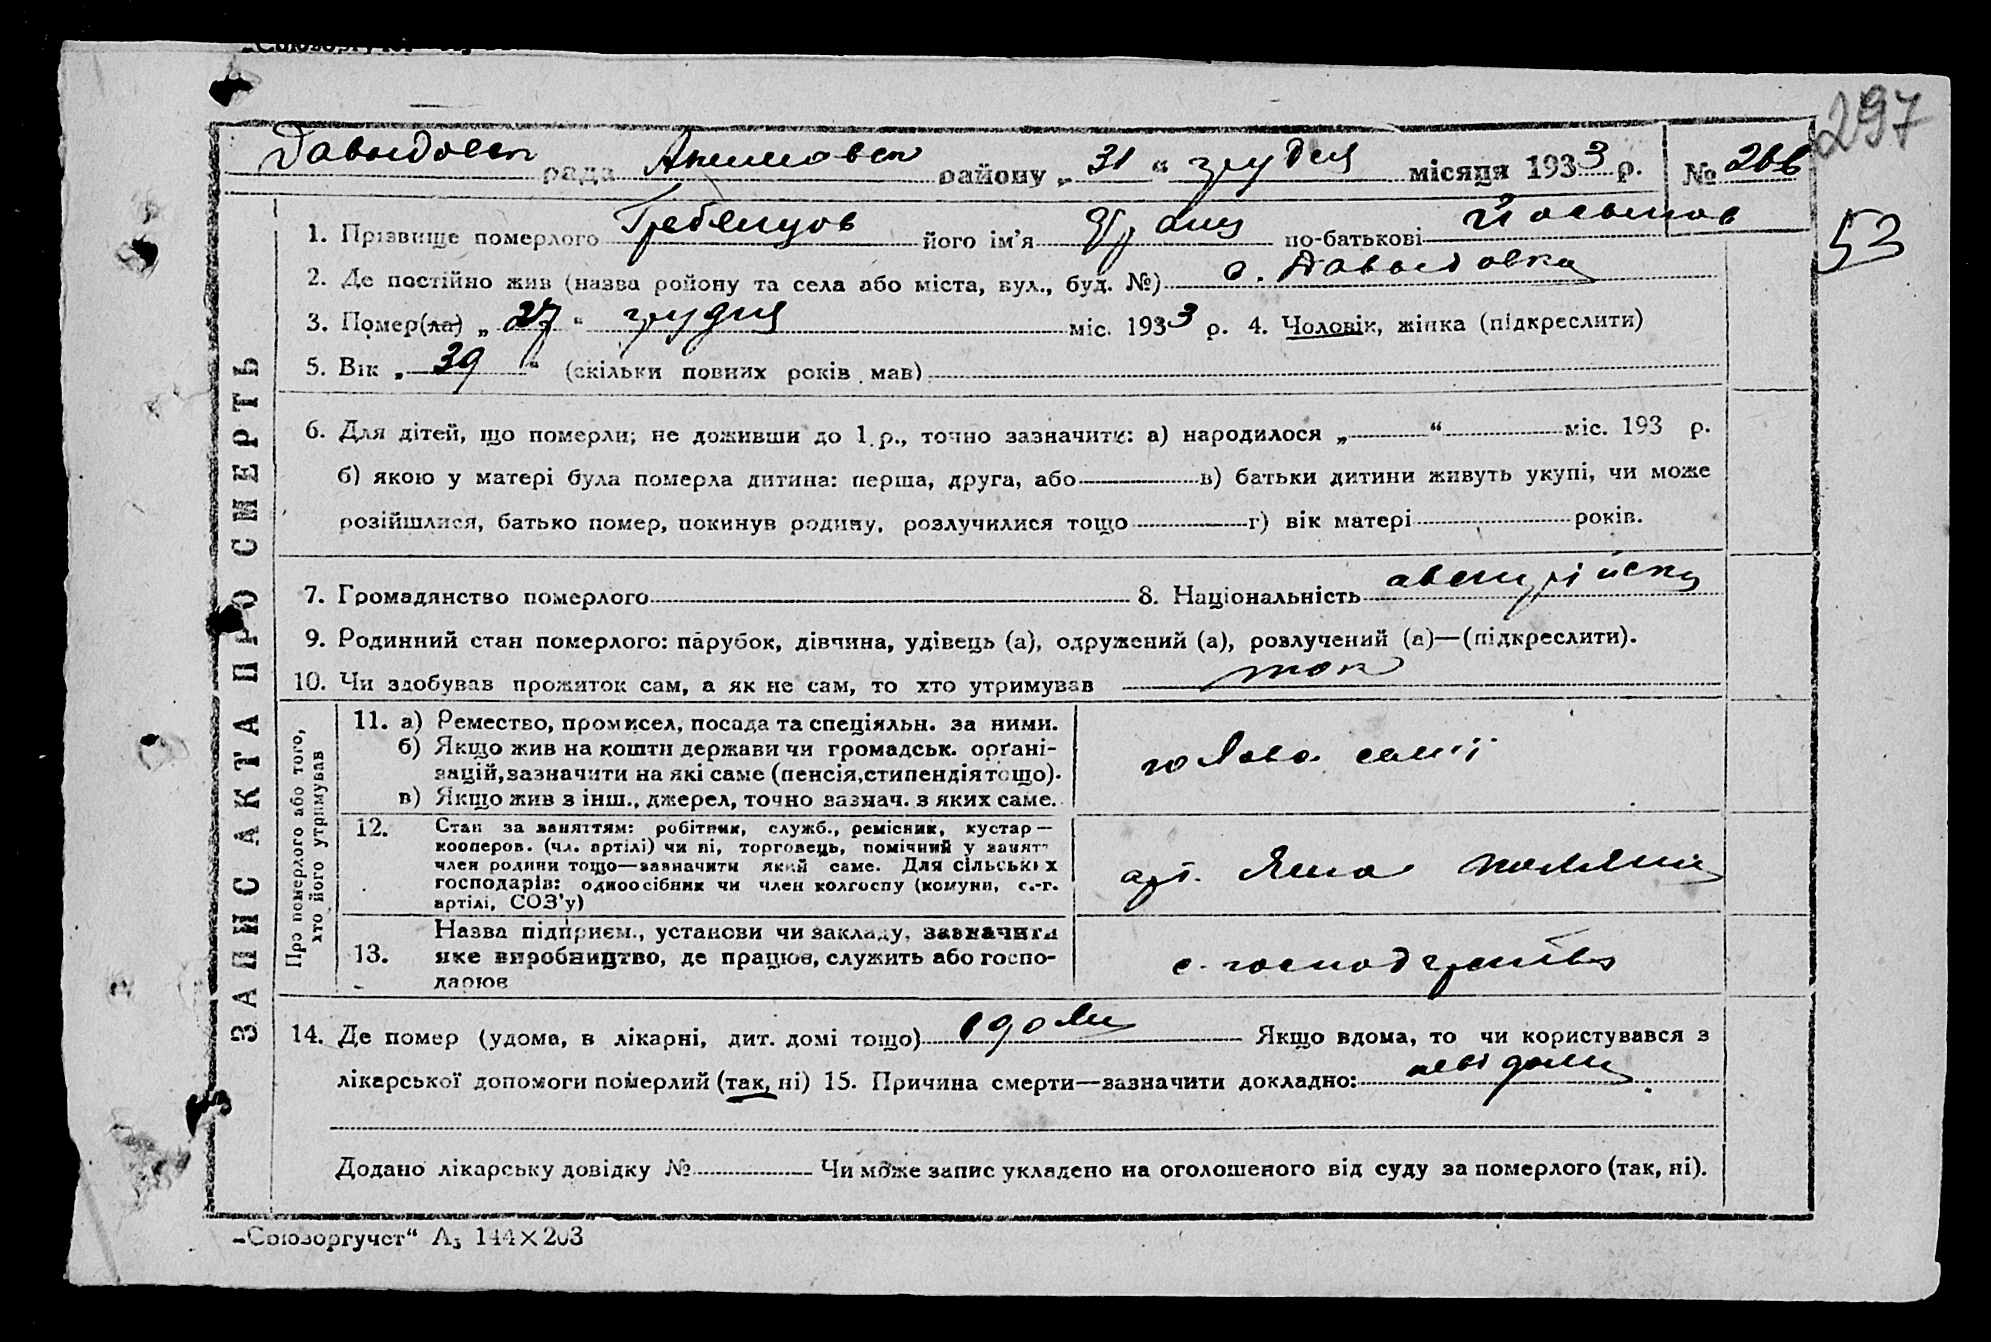 297
Давыдовск рада Акимовск району „ 31 “ грудня місяця 1933 р. № 266
53
1. Прізвище померлого Гребенцов його ім'я Франц по-батькові Йосипов
2. Де постійно жив (назва району та села або міста, вул., буд. №) с. Давыдовка
3. Помер(ла) „ 27 “ грудня міс. 1933 р. 4. Чоловік, жінка (підкреслити)
5. Вік „ 39 “ (скільки повних років мав)
6. Для дітей, що померли; не доживши до 1 р., точно зазначити: а) народилося „ “ міс. 193 р.
б) якою у матері була померла дитина: перша, друга, або в) батьки дитини живуть укупі, чи може
розійшлися, батько помер, покинув родину, розлучилися тощо г) вік матері років.
7. Громадянство померлого 8. Національність австрійська
9. Родинний стан померлого: парубок, дівчина, удівець (а), одружений (а), розлучений (а)—(підкреслити).
10. Чи здобував прожиток сам, а як не сам, то хто утримував так
ЗАПИС АКТА ПРО СМЕРТЬ
Про померлого або того,
хто його утримував
11. а) Ремество, промисел, посада та спеціяльн. за ними.
б) Якщо жив на кошти держави чи громадськ. орґані-
зацій, зазначити на які саме (пенсія, стипендія тощо).
в) Якщо жив з інш., джерел, точно зазнач. з яких саме.
голова сімії
12. Стан за заняттям: робітник, служб., ремісник, кустар—
кооперов. (чл. артілі) чи ні, торговець, помічний у занят.
член родини тощо—зазначити який саме. Для сільських
господарів: одноосібник чи член колгоспу (комуни, с.-г.
артілі, СОЗ'у)
арт. Ясна поляна
13. Назва підприєм., установи чи закладу, зазначити
яке виробництво, де працює, служить або госпо-
дарює
с. господарство
14. Де помер (удома, в лікарні, дит. домі тощо) удома Якщо вдома, то чи користувався з
лікарської допомоги померлий (так, ні) 15. Причина смерти—зазначити докладно: невідома
Додано лікарську довідку № Чи може запис укладено на оголошеного від суду за померлого (так, ні).
„Союзоргучет“ А₅ 144×203